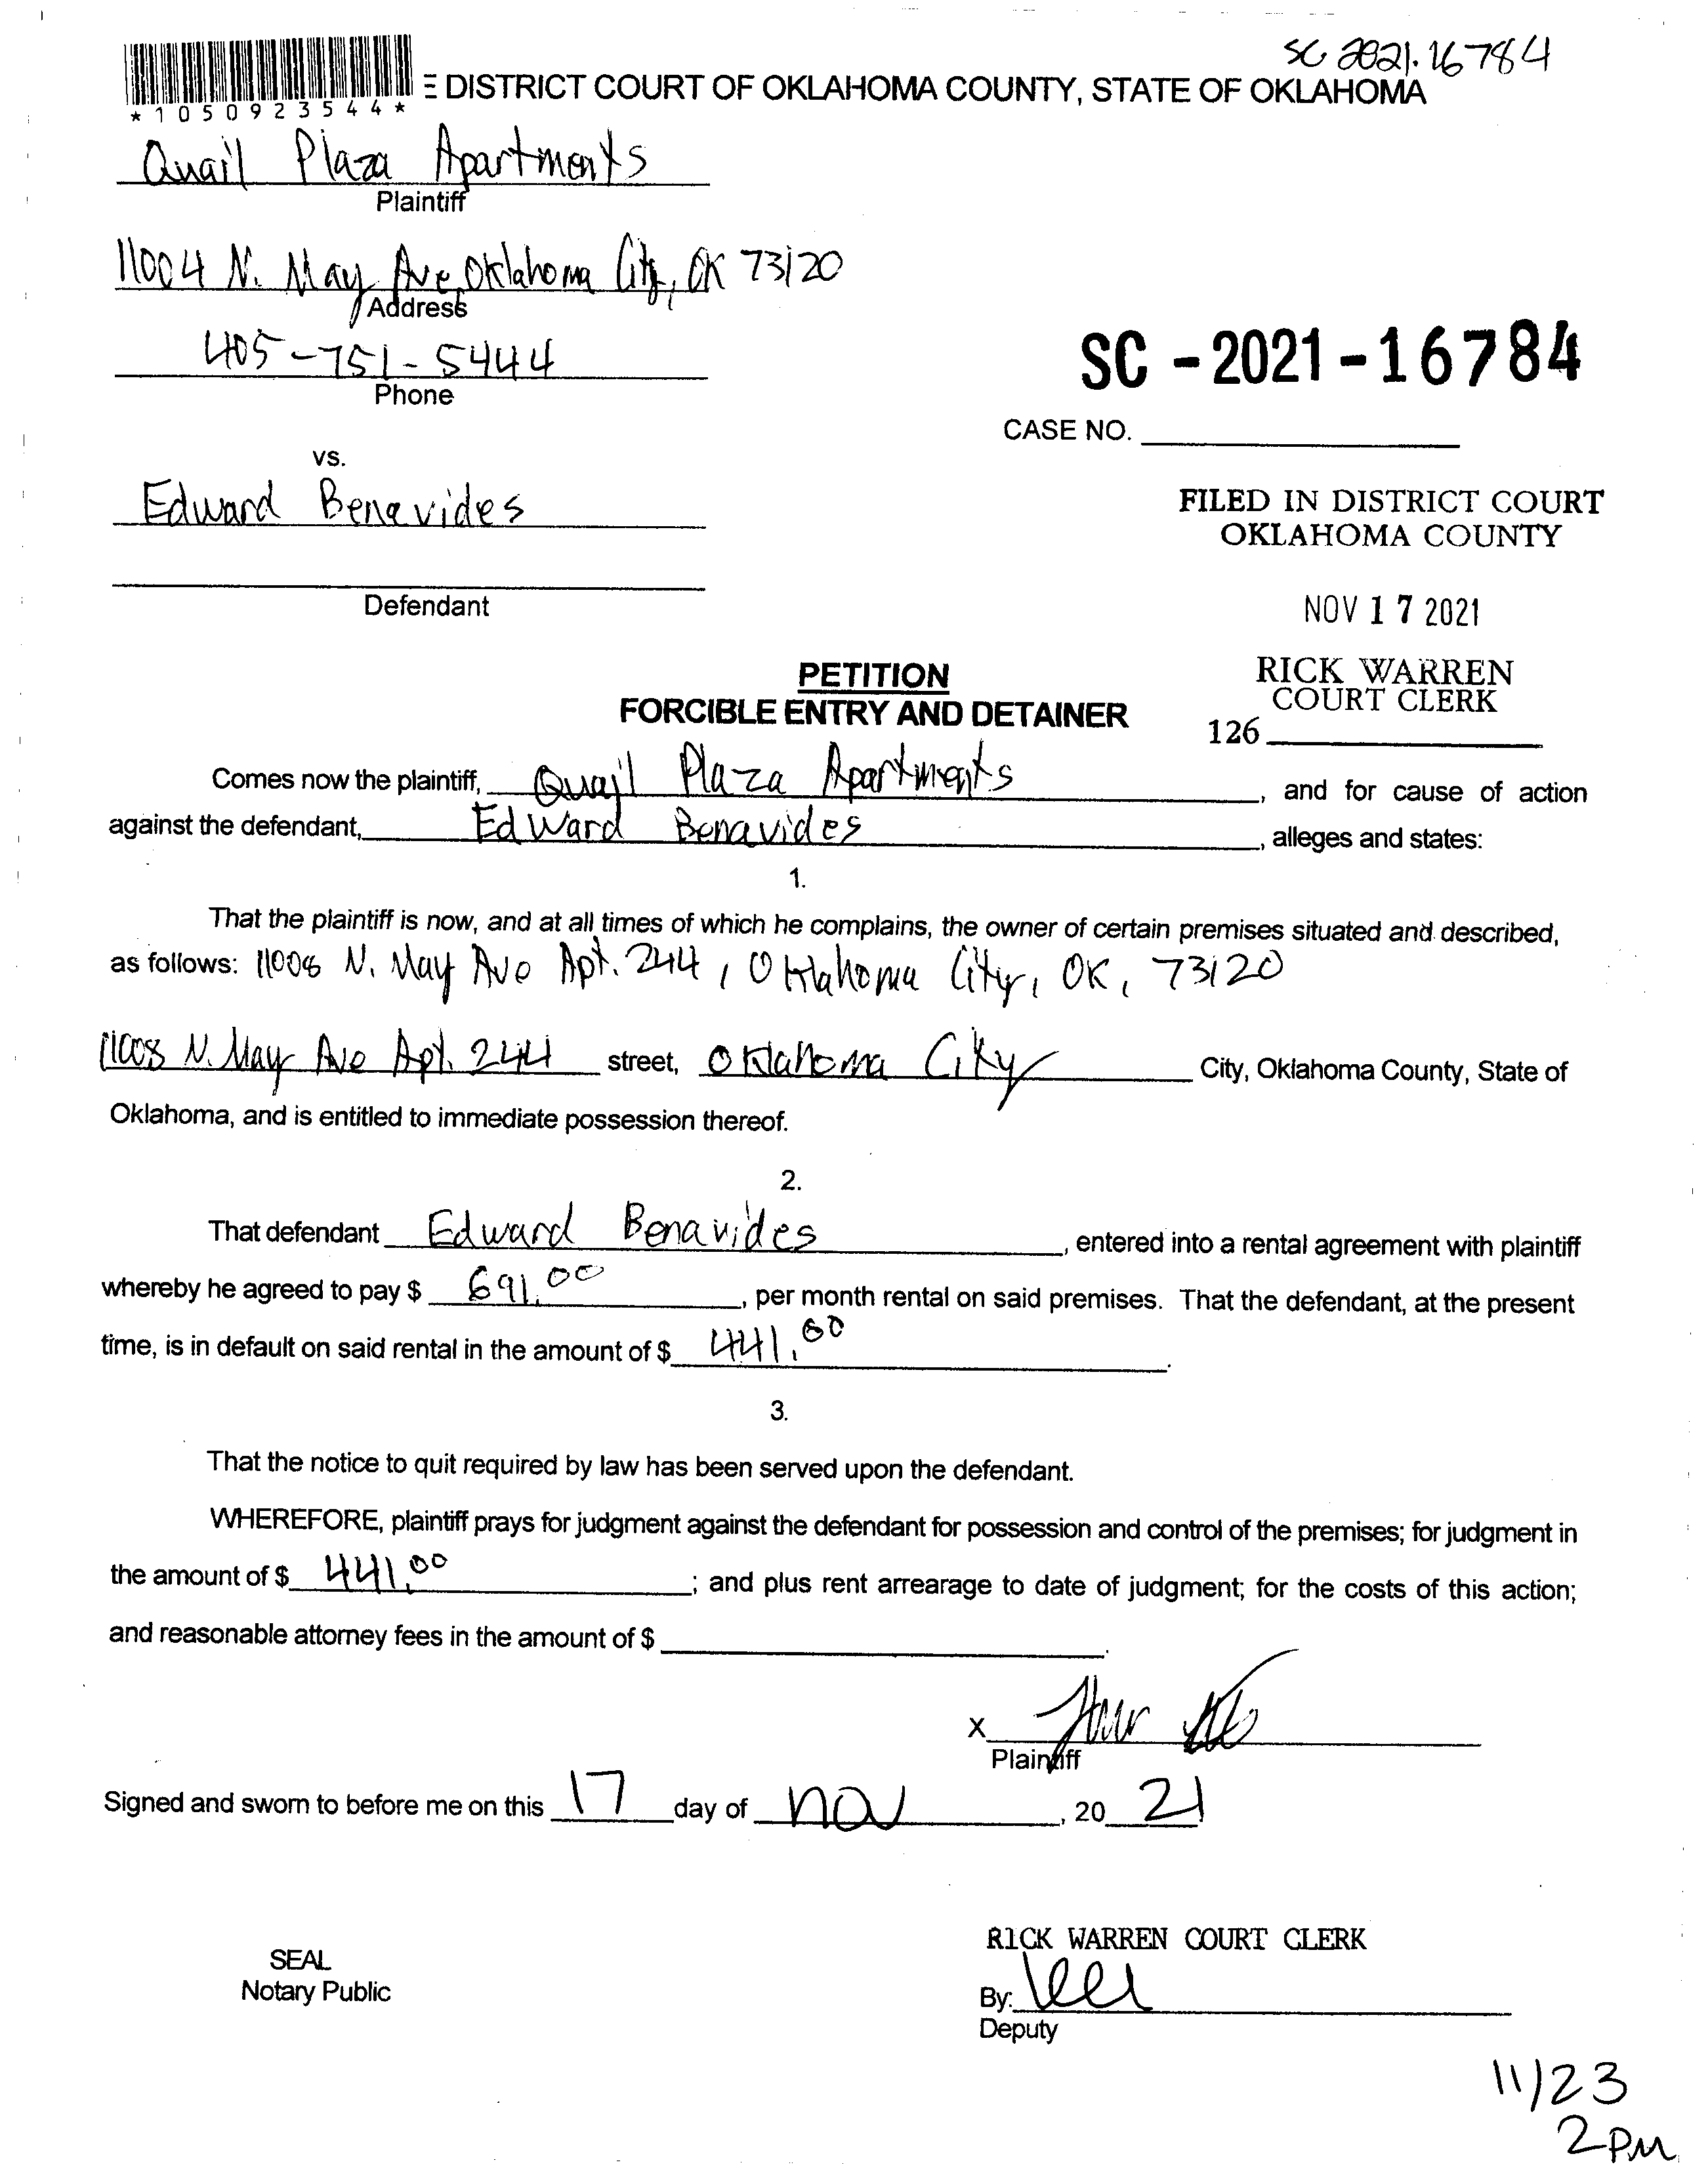 SC 2021-16784
E DISTRICT COURT OF OKLAHOMA COUNTY, STATE OF OKLAHOMA
* 1 0 5 0 9 2 3 5 4 4 *
Quail Plaza Apartments
Plaintiff
11004 N. May Ave, Oklahoma City, OK 73120
Address
405-751-5444
Phone
SC - 2021 - 16784
CASE NO.
vs.
Edward Benavides
Defendant
FILED IN DISTRICT COURT
OKLAHOMA COUNTY
NOV 17 2021
RICK WARREN
COURT CLERK
126
PETITION
FORCIBLE ENTRY AND DETAINER
Comes now the plaintiff, Quail Plaza Apartments, and for cause of action
against the defendant, Edward Benavides, alleges and states:
1.
That the plaintiff is now, and at all times of which he complains, the owner of certain premises situated and described,
as follows: 11008 N. May Ave Apt. 244, Oklahoma City, OK, 73120
11008 N. May Ave Apt. 244 street, Oklahoma City City, Oklahoma County, State of
Oklahoma, and is entitled to immediate possession thereof.
2.
That defendant Edward Benavides, entered into a rental agreement with plaintiff
whereby he agreed to pay $ 691.00, per month rental on said premises. That the defendant, at the present
time, is in default on said rental in the amount of $ 441.00.
3.
That the notice to quit required by law has been served upon the defendant.
WHEREFORE, plaintiff prays for judgment against the defendant for possession and control of the premises; for judgment in
the amount of $ 441.00; and plus rent arrearage to date of judgment; for the costs of this action;
and reasonable attorney fees in the amount of $ .
X
Plaintiff
Signed and sworn to before me on this 17 day of nov, 20 21
SEAL
Notary Public
RICK WARREN COURT CLERK
By:
Deputy
11/23
2PM